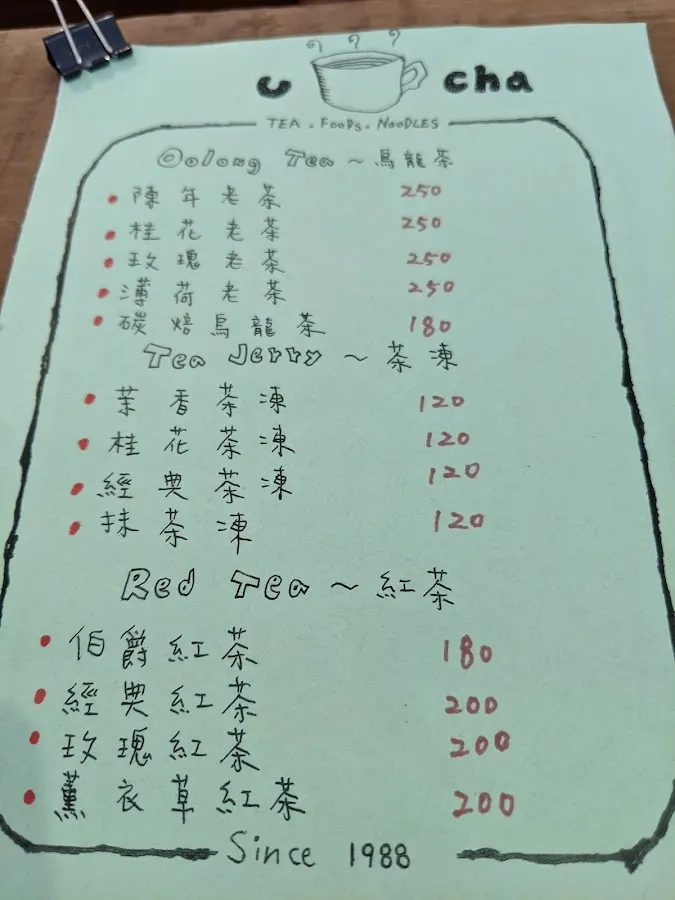 u cha
TEA. FOODS. NOODLES
Oolong Tea ~ 烏龍茶
陳年老茶 250
桂花老茶 250
玫瑰老茶 250
薄荷老茶 250
碳焙烏龍茶 180
Tea Jerry ~ 茶凍
茉香茶凍 120
桂花茶凍 120
經典茶凍 120
抹茶凍 120
Red Tea ~ 紅茶
伯爵紅茶 180
經典紅茶 200
玫瑰紅茶 200
薰衣草紅茶 200
Since 1988